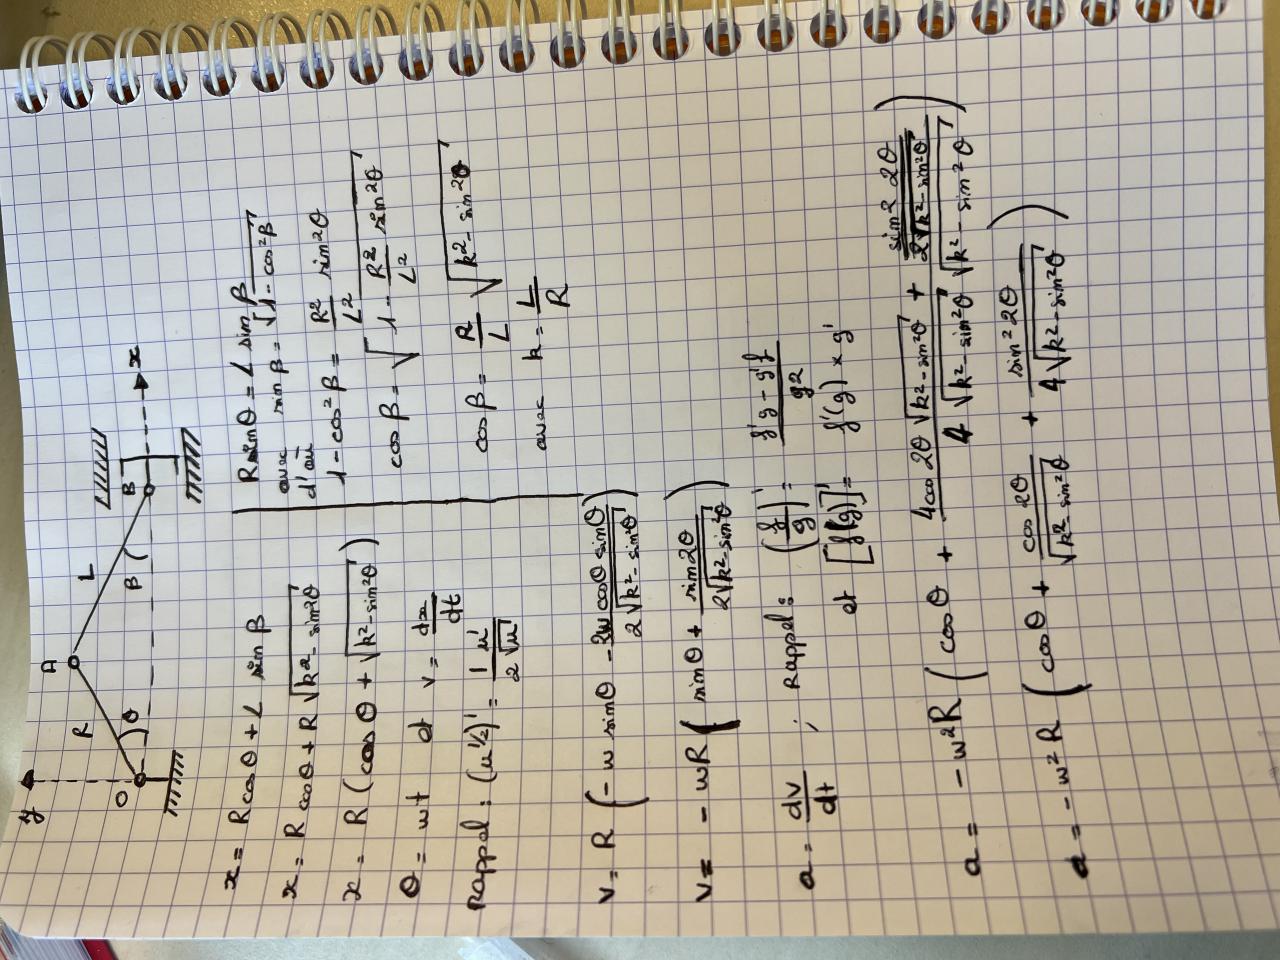 y
A
R
L
θ
β
O
B
x
x = R cos θ + L sin β
x = R cos θ + R √(k² - sin²θ)
x = R (cos θ + √(k² - sin²θ))
θ = wt et v = dx/dt
Rappel : (u^½)' = 1/2 u'/√u
R sin θ = L sin β
avec sin β = √(1 - cos²β)
d'où
1 - cos²β = R²/L² sin²θ
cos β = √(1 - R²/L² sin²θ)
cos β = R/L √(k² - sin²θ)
avec k = L/R
v = R (-w sin θ - 2w cos θ sin θ / 2√(k² - sin²θ))
v = - wR (sin θ + sin 2θ / 2√(k² - sin²θ))
a = dv/dt ; Rappel : (f/g)' = f'g - g'f / g²
et [f(g)]' = f'(g) × g'
a = - w²R (cos θ + 4 cos 2θ √(k² - sin²θ) + sin² 2θ / 2√(k² - sin²θ) / 4 √(k² - sin²θ) √(k² - sin²θ))
a = - w²R (cos θ + cos 2θ / √(k² sin²θ) + sin² 2θ / 4 √(k² - sin²θ))